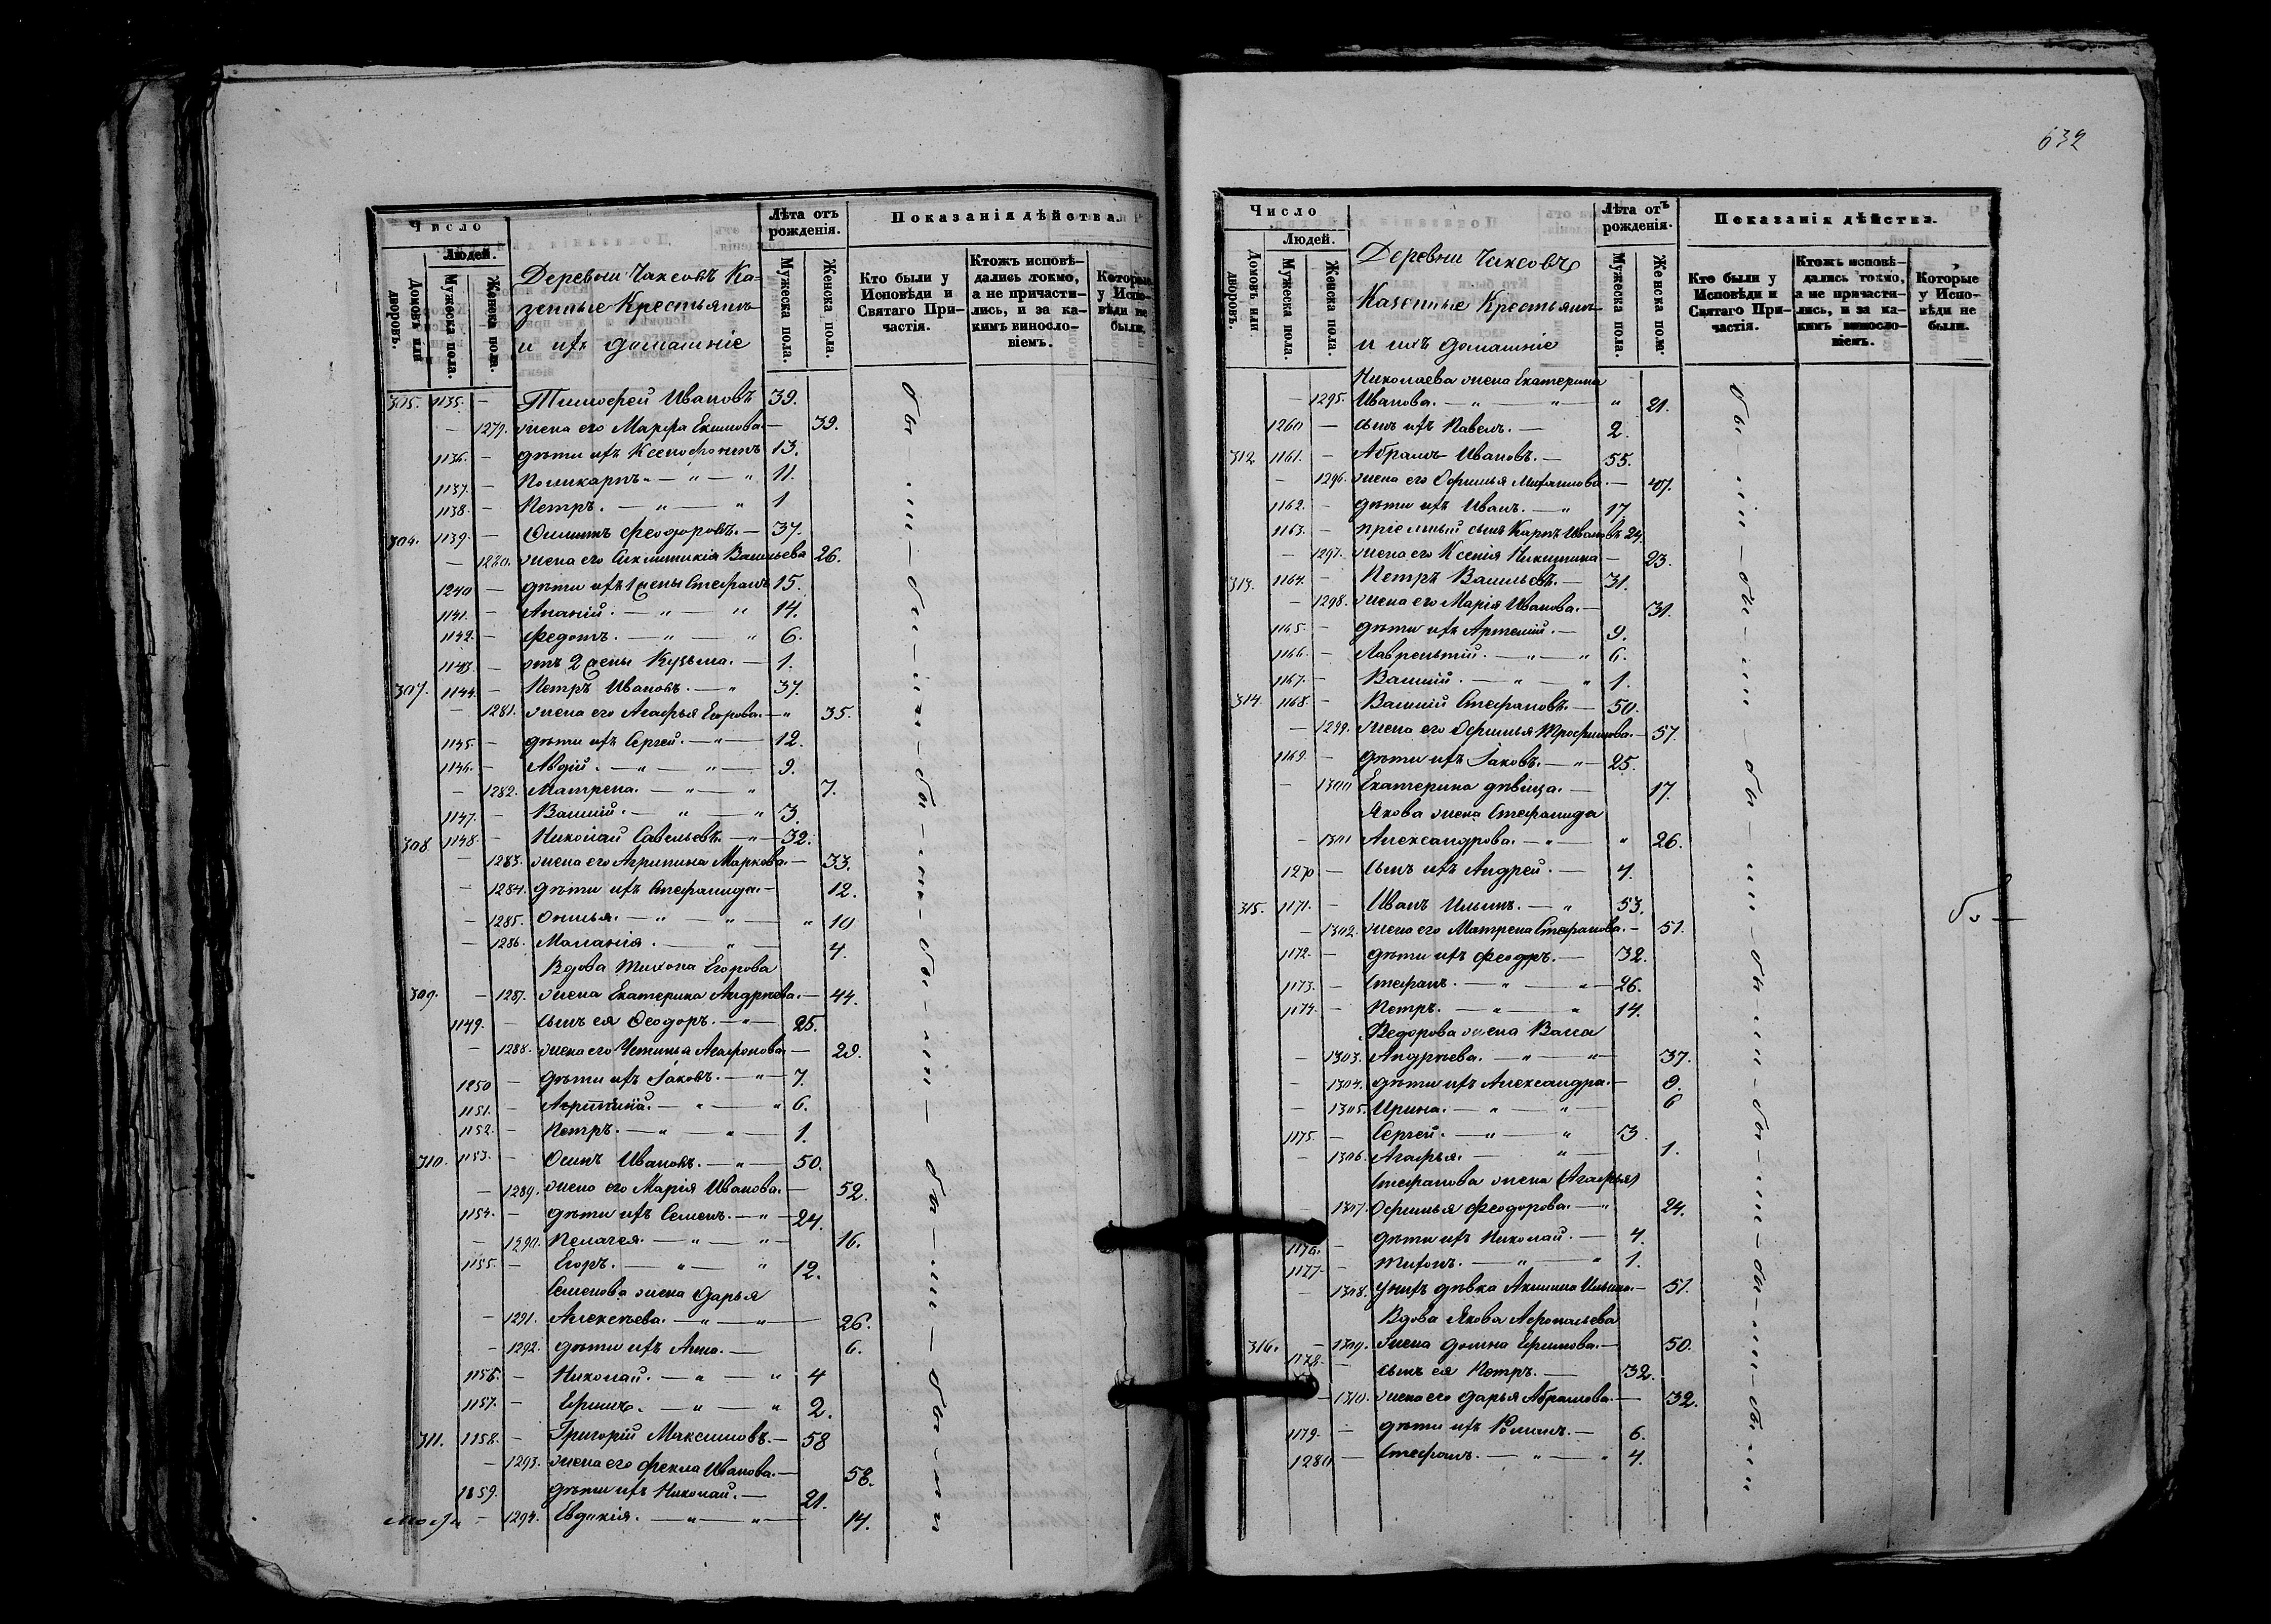 632
Число
Людей.
Домовъ или дворовъ.
Мужеска пола.
Женска пола.
Деревни Чаксовъ Ка-
зенные Крестьянъ
и ихъ домашніе
Лѣта отъ рожденія.
Мужеска пола.
Женска пола.
Показанія дѣйства.
Кто были у Исповѣди и Святаго При-частія.
Ктожъ исповѣ-дались токмо, а не причасти-лись, и за ка-кимъ винosло-віемъ.
Которые у Испо-вѣди не были.
305. 1135. — Тимофей Ивановъ 39.
— 1279. жена его Марфа Екимова — 39.
1136. — дѣти ихъ Ксенофонтъ 13.
1137. — Поликарпъ. — " — " 11.
1138. — Петръ. — " " 1
304. 1139. — Филиппъ Феодоровъ. — 37.
— 1280. жена его Васильева 26.
1240 — дѣти ихъ 1 жены Стефанъ 15.
1141. — Ананій. — " — " 14.
1142. — Федотъ. — " — " 6.
1143. — отъ 2 жены Кузьма. — 1.
307. 1144. — Петръ Ивановъ. — " 37.
— 1281. жена его Агафья Егорова. — " 35.
1145. — дѣти ихъ Сергей. — " — 12.
1146. — Авдій. — " — " — 9.
— 1282. Матрена. — " — " 7.
1147. — Василій. — " — " 3.
308. 1148. — Николай Савельевъ. — " — 32.
— 1283. жена его Агрипина Маркова. — 33.
— 1284. дѣти ихъ Стефанида. — 12.
— 1285. — " — " — " 10
— 1286. Маланія. — " — 4.
Вдова Тихона Егорова
309. — 1287. жена Екатерина Андрѣева. — 44.
1149. — сынъ ея Феодоръ. — " — 25.
— 1288. жена его Устинья Агафонова — 28.
1250 — дѣти ихъ Іаковъ. — " — 7.
1151. — — " — " 6.
1152. — Петръ. — " " 1.
310. 1153. — Осипъ Ивановъ. — " — 50.
— 1289. жена его Марія Иванова. — 52.
1154. — дѣти ихъ Семенъ. — " — 24.
— 1290. Пелагея. — " — " — 16.
1155. — Егоръ. — " — " 12.
Семенова жена Дарья
— 1291. Алексѣева. — " — " — 26.
— 1292. дѣти ихъ Анна. — 6.
1156. — Николай. — " — " 4
1157. — Ефимъ. — " — " 2.
311. 1158. — Григорій Максимовъ. — 58
— 1293. жена его Фекла Иванова. — 58.
1859. дѣти ихъ Николай. — 21.
— 1294. Евдокія. — " — " — 14.
бы — ли — бы — ли — бы — ли — бы — ли — бы — ли — бы — ли
Число
Людей.
Домовъ или дворовъ.
Мужеска пола.
Женска пола.
Деревни Чаксовъ
Казенные Крестьянъ
и ихъ домашніе
Лѣта отъ рожденія.
Мужеска пола.
Женска пола.
Показанія дѣйства.
Кто были у Исповѣди и Святаго При-частія.
Ктожъ исповѣ-дались токмо, а не причасти-лись, и за ка-кимъ винosло-віемъ.
Которые у Испо-вѣди не были.
Николаева жена Екатерина
— 1295. Иванова. — " " — " 21.
1260 — сынъ ихъ Павелъ. — 2.
312 1161. — Абрамъ Ивановъ. — 55.
— 1296. жена его Офимья — 47.
1162. — дѣти ихъ Иванъ. — " 17.
1163. — пріемный сынъ Карпъ Ивановъ 24.
— 1297. жена его Ксенія Никитина — 23.
313. 1164. — Петръ Васильевъ. — 31.
— 1298. жена его Марія Иванова. — 31.
1165. — дѣти ихъ Артемій. — 9.
1166. — Лаврентій. — " — " 6.
1167. — Василій. — " — " 1.
314. 1168. — Василій Стефановъ. — 50.
— 1299. жена его Офимья Трофимова. — 57.
1169. — дѣти ихъ Іаковъ. — " — 25.
— 1300 Екатерина дѣвица. — 17.
Якова жена Стефанида
— 1301 Александрова. — " — " 26.
1270 — сынъ ихъ Андрей. — 4.
315. 1171. — Иванъ Ильинъ. — " 53.
— 1302. жена его Матрена Стефанова. — 51.
1172. — дѣти ихъ Феодоръ. — 32.
1173. — Стефанъ. — " — " — 26.
1174. — Петръ. — " — " 14.
Федорова жена Васса
— 1303. Андрѣева. — " — " — 37.
— 1304. дѣти ихъ Александра. — 9.
— 1305. Ирина. — " — " — 6
1175. — Сергей. — " — " 3.
— 1306. Агафья. — " — 1.
Стефанова жена (Агафья)
— 1307. Офимья Феодорова. — " 24.
1176. — дѣти ихъ Николай. — 4.
1177. — Тихонъ. — " — " 1.
— 1308. У нихъ дѣвка Акилина Ильина. — 51.
Вдова Якова Афонасьева
316. — 1309. жена Домна Ефимова. — 50.
1178. — сынъ ея Петръ. — 32.
— 1310. жена его Дарья Абрамова. — 32.
1179. — дѣти ихъ — 6.
1280 — Стефанъ. — " — " 4.
бы — ли — бы — ли — бы — ли — бы — ли — бы — ли — бы — ли — бы — ли